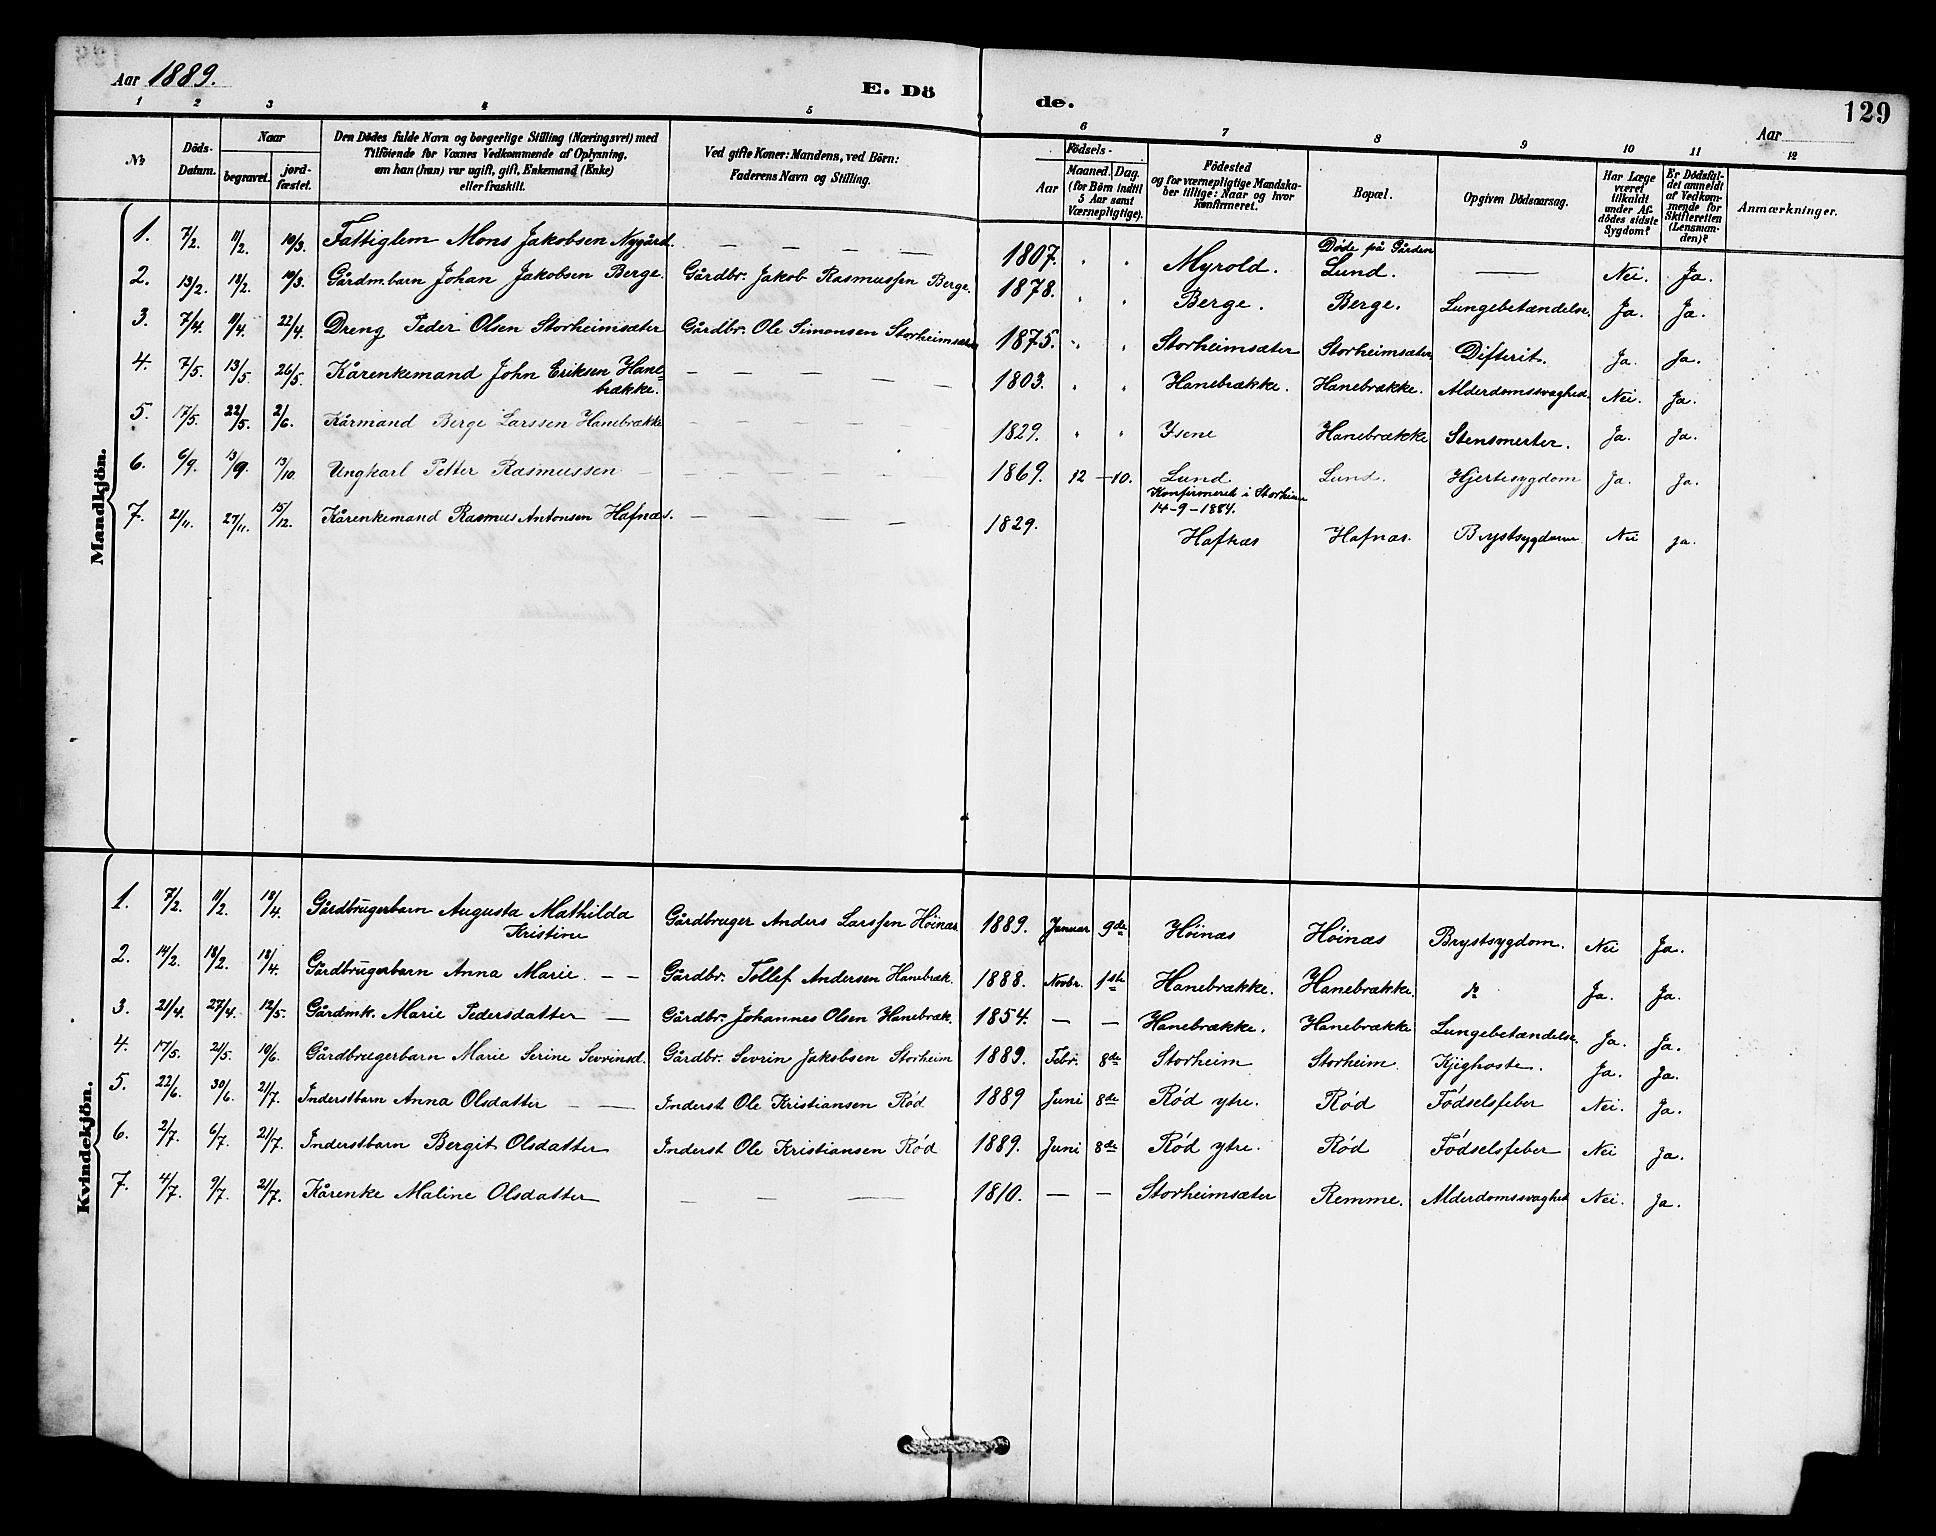 Aar 1889.
E. Dö
de.
Aar
129
1 2 3 4 5 6 7 8 9 10 11 12
No
Döds-Datum.
Naar
begravet.
jord-fæstet.
Den Dödes fulde Navn og borgerlige Stilling (Næringsvei) med
Tilföiende for Voxnes Vedkommende af Oplysning,
om han (hun) var ugift, gift, Enkemand (Enke)
eller fraskilt.
Ved gifte Koner: Mandens, ved Börn:
Faderens Navn og Stilling.
Födsels-
Aar
Maaned. Dag.
(for Börn indtil
5 Aar samt
Værnepligtige).
Födested
og for værnepligtige Mandska-
ber tillige: Naar og hvor
konfirmeret.
Bopæl.
Opgiven Dödsaarsag.
Har Læge
været
tilkaldt
under Af-
dödes sidste
Sygdom?
Er Dödsfal-
det anmeldt
af Vedkom-
mende for
Skifteretten
(Lensman-
den)?
Anmærkninger.
Mandkjön.
1. 7/2. 11/2. 10/3. Fattiglem Mons Jakobsen Nygård. — — — — 1807. " " Myrold. Døde på Gården Lund. — Nei. Ja.
2. 13/2. 13/2. 10/3. Gårdm.barn Johan Jakobsen Berge. Gårdbr. Jakob Rasmussen Berge. 1878. " " Berge. Berge. Lungebetændelse. Ja. Ja.
3. 7/4. 11/4. 22/4. Dreng Peder Olsen Storheimsæter Gårdbr. Ole Simonsen Storheimsæter 1875. " " Storheimsæter Storheimsæter. Difterit. Ja. Ja.
4. 7/5. 13/5. 26/5. Kårenkemand John Eriksen Hane-
brække. — — — — — 1803. " " Hanebrække. Hanebrække. Alderdomssvaghed. Nei. Ja.
5. 17/5. 22/5. 2/6. Kårmand Berge Larssen Hanebrække — — — — 1829. " " Isene Hanebrække Stensmerter. Ja. Ja.
6. 6/9. 13/9. 13/10. Ungkarl Petter Rasmussen — — — — — 1869. 12 — 10. Lund. Lund. Hjertesygdom Ja. Ja.
Konfirmeret i Storheim
14-9-1884.
7. 21/11. 27/11. 15/12. Kårenkemand Rasmus Antonsen Hafnæs. — — — — 1829. Hafnæs Hafnæs. Brystsygdom Nei ja.
Kvindekjön.
1. 7/2. 11/2. 18/4. Gårdbrugerbarn Augusta Mathilda
Kristine Gårdbruger Anders Larssen Höinæs 1889. Januar 9de Höinæs Höinæs Brystsygdom. Nei Ja.
2. 14/2. 18/2. 18/4. Gårdbrugerbarn Anna Marie. — — Gårdbr. Tollef Andersen Hanebræk. 1888. Novbr. 1ste Hanebrække. Hanebrække. do Ja. Ja.
3. 21/4. 27/4. 12/5. Gårdmk. Marie Pedersdatter — Gårdbr. Johannes Olsen Hanebræk. 1854. — — Hanebrække. Hanebrække Lungebetændelse. Ja. Ja.
4. 17/5. 21/5. 10/6. Gårdbrugerbarn Marie Serine Sevrinsd. Gårdbr. Sevrin Jakobsen Storheim 1889. Febr. 8de Storheim Storheim. Kjighoste. Ja. Ja.
5. 22/6. 30/6. 21/7. Inderstbarn Anna Olsdatter — — Inderst Ole Kristiansen Rød 1889 Juni 8de Rød ytre. Rød Fødselsfeber Nei. Ja.
6. 2/7. 6/7. 21/7. Inderstbarn Bergit Olsdatter Inderst Ole Kristiansen Rød 1889. Juni 8de Rød ytre. Rød Fødselsfeber Nei Ja.
7. 4/7. 9/7. 21/7. Kårenke Maline Olsdatter — — — 1810. — — Storheimsæter Remme. Alderdomssvaghed Nei. Ja.